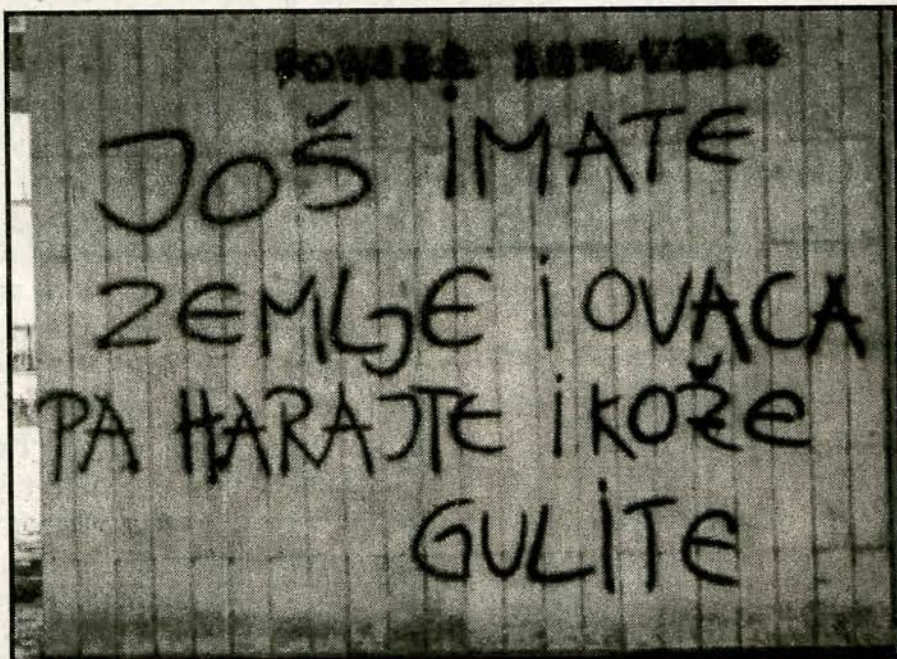 JOŠ IMATE
ZEMLJE I OVACA
PA HARAJTE I KOŽE
GULITE